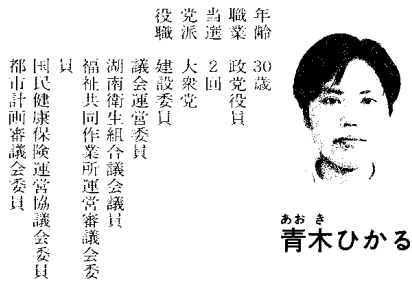 年齢 30歳
職業 政党役員
当選 2回
党派 大衆党
役職 建設委員
議会運営委員
湖南衛生組合議会議員
福祉共同作業所運営審議会委
員
国民健康保険運営協議会委員
都市計画審議会委員
あおき
青木ひかる